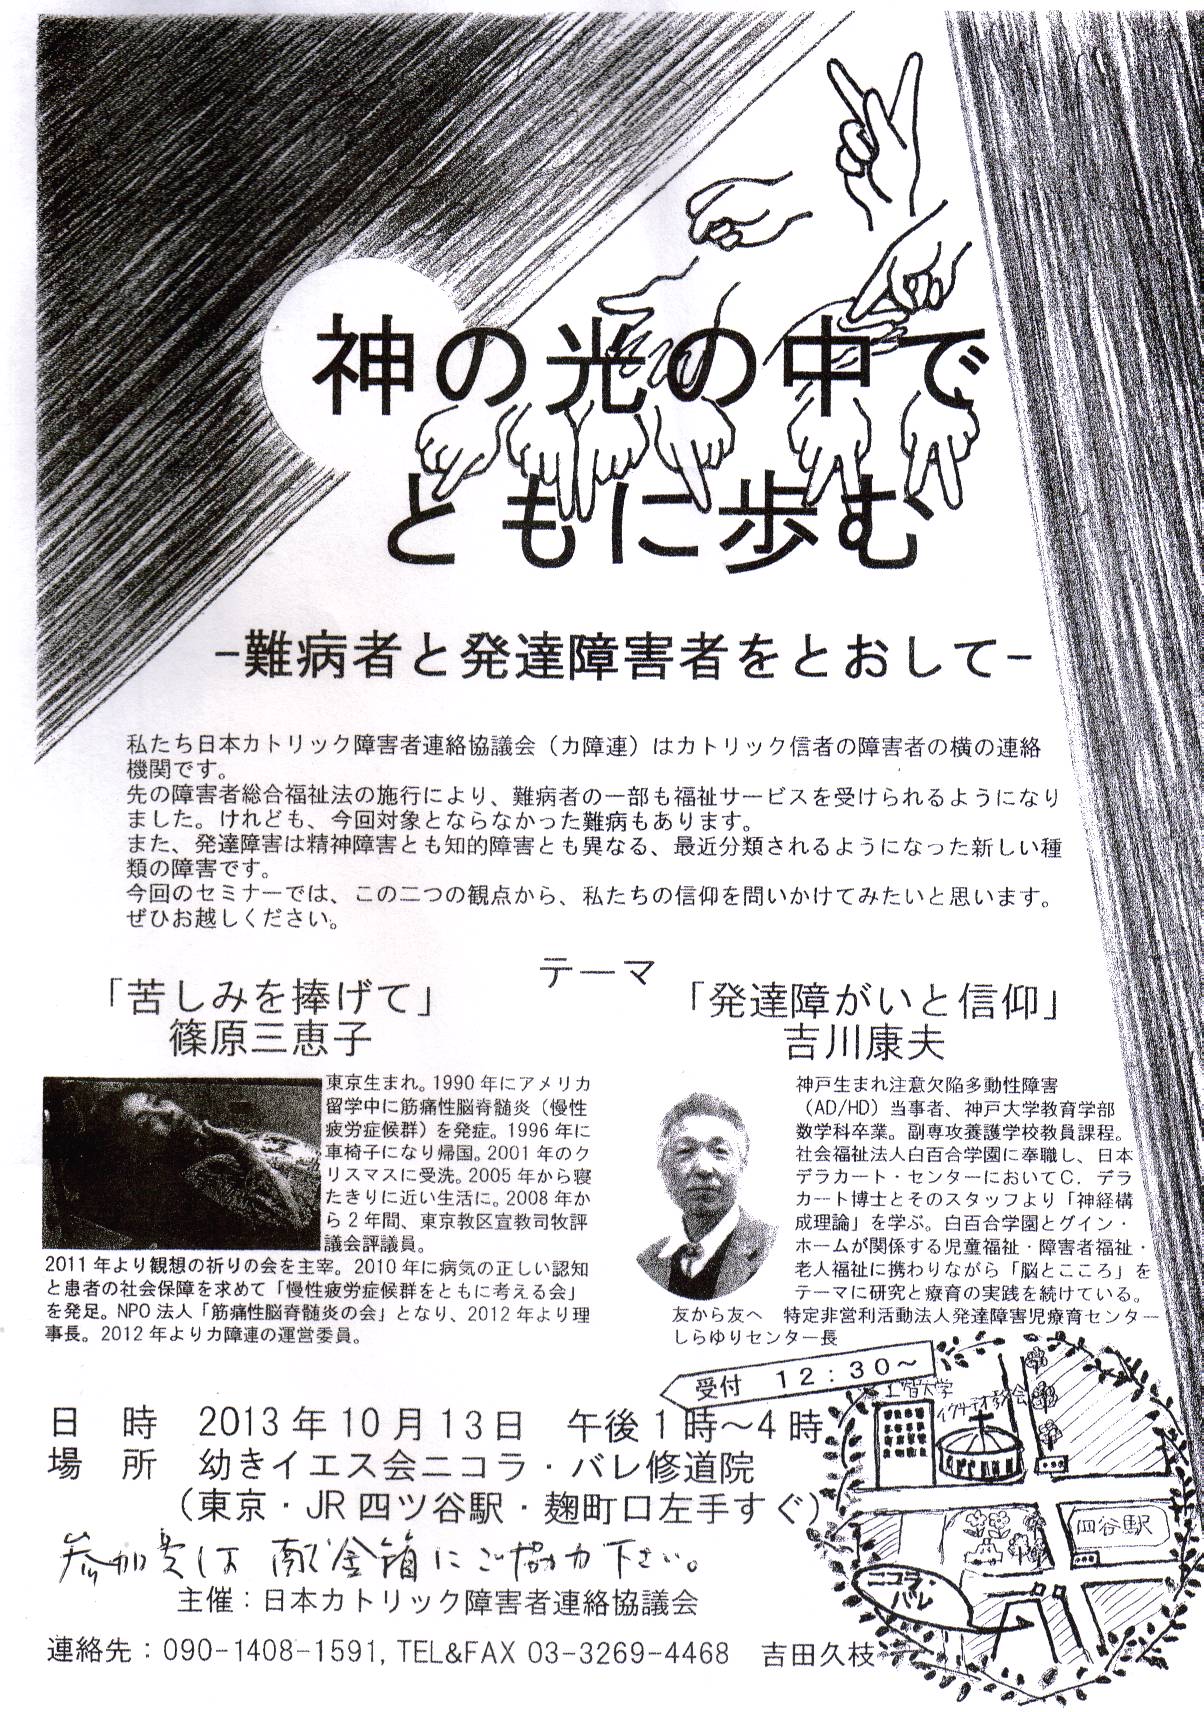 神の光の中で
ともに歩む
-難病者と発達障害者をとおして-
私たち日本カトリック障害者連絡協議会（カ障連）はカトリック信者の障害者の横の連絡
機関です。
先の障害者総合福祉法の施行により、難病者の一部も福祉サービスを受けられるようになり
ました。けれども、今回対象とならなかった難病もあります。
また、発達障害は精神障害とも知的障害とも異なる、最近分類されるようになった新しい種
類の障害です。
今回のセミナーでは、この二つの観点から、私たちの信仰を問いかけてみたいと思います。
ぜひお越しください。
テーマ
「苦しみを捧げて」
篠原三恵子
東京生まれ。1990年にアメリカ
留学中に筋痛性脳脊髄炎（慢性
疲労症候群）を発症。1996年に
車椅子になり帰国。2001年のク
リスマスに受洗。2005年から寝
たきりに近い生活に。2008年か
ら2年間、東京教区宣教司牧評
議会評議員。
2011年より観想の祈りの会を主宰。2010年に病気の正しい認知
と患者の社会保障を求めて「慢性疲労症候群をともに考える会」
を発足。NPO法人「筋痛性脳脊髄炎の会」となり、2012年より理
事長。2012年よりカ障連の運営委員。
「発達障がいと信仰」
吉川康夫
神戸生まれ注意欠陥多動性障害
（AD/HD）当事者、神戸大学教育学部
数学科卒業。副専攻養護学校教員課程。
社会福祉法人白百合学園に奉職し、日本
デラカート・センターにおいてC．デラ
カート博士とそのスタッフより「神経構
成理論」を学ぶ。白百合学園とグイン・
ホームが関係する児童福祉・障害者福祉・
老人福祉に携わりながら「脳とこころ」を
テーマに研究と療育の実践を続けている。
友から友へ　特定非営利活動法人発達障害児療育センター
しらゆりセンター長
受付　12:30～
日　時　2013年10月13日　午後1時～4時
場　所　幼きイエス会ニコラ・バレ修道院
（東京・JR四ツ谷駅・麹町口左手すぐ）
参加費は 献金箱にご協力下さい。
主催：日本カトリック障害者連絡協議会
連絡先：090-1408-1591, TEL&FAX 03-3269-4468　吉田久枝
上智大学
イグナチオ教会
四谷駅
ニコラ・
バレ